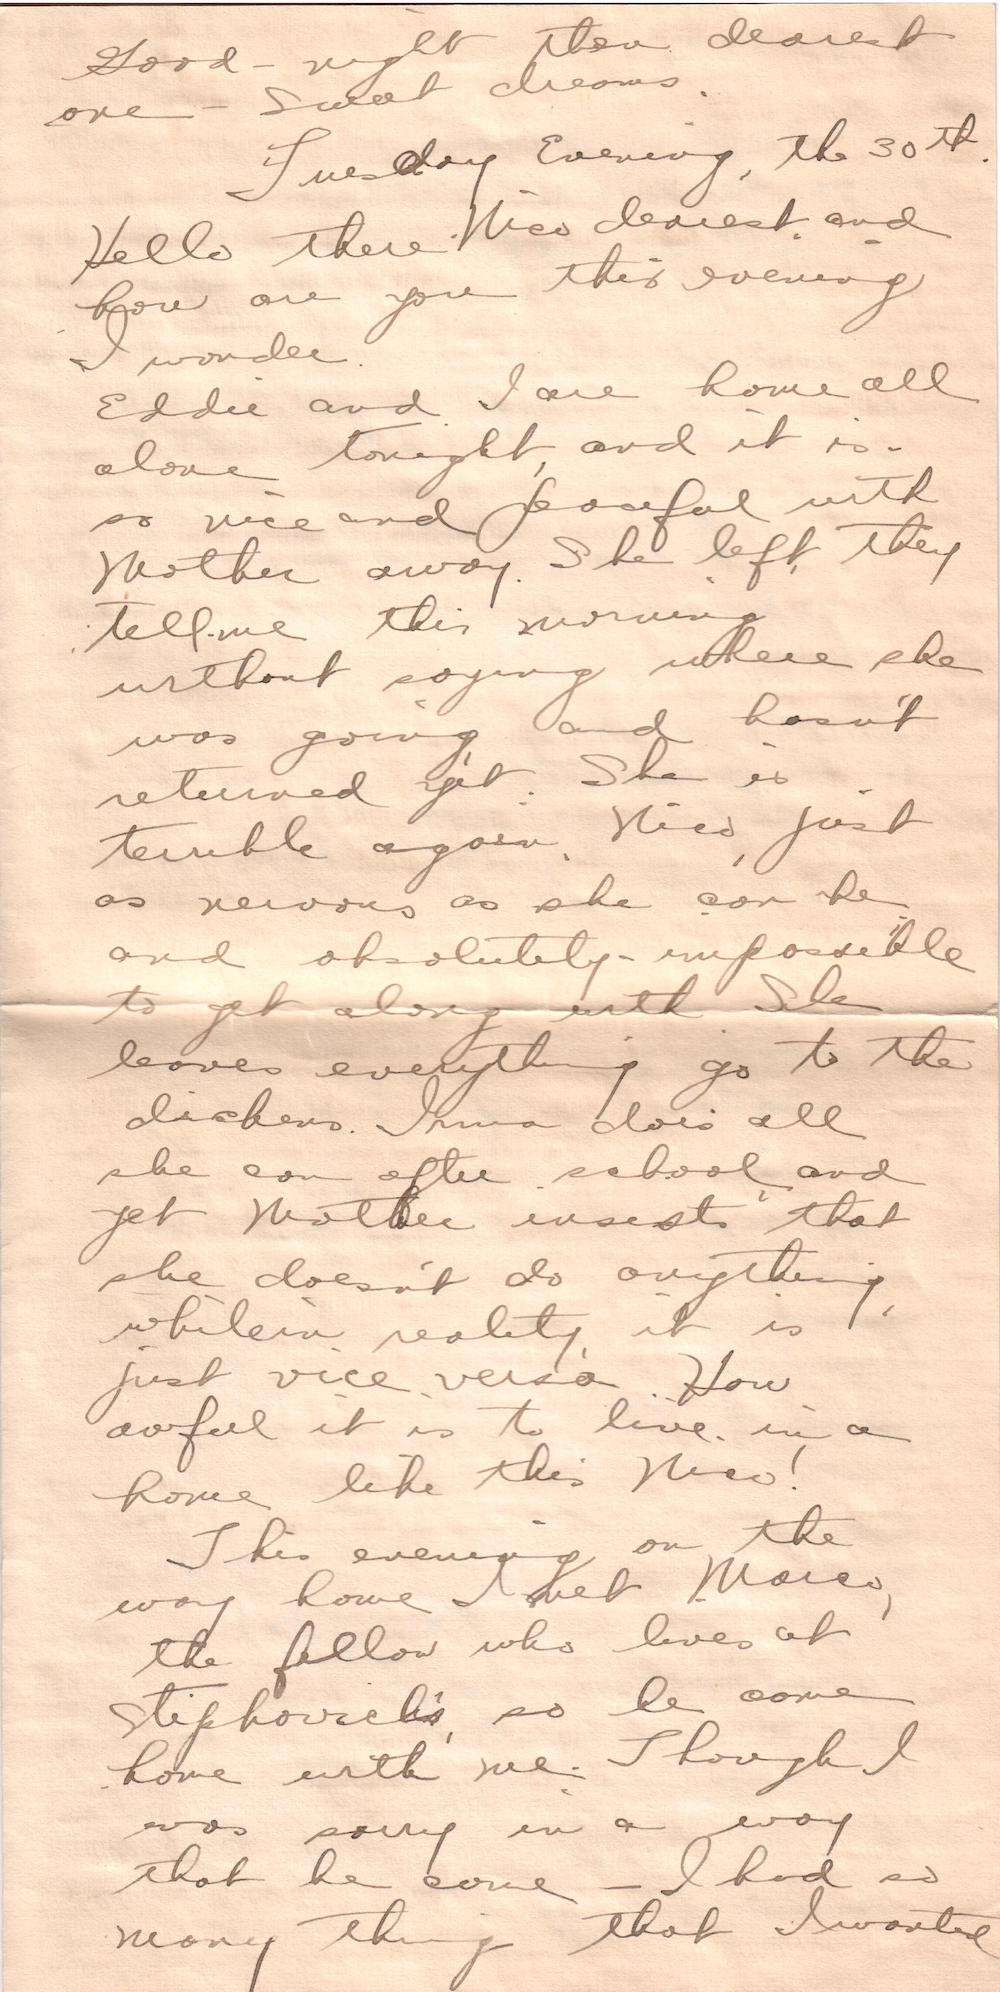 Good-night then dearest
one - Sweet dreams.
Tuesday Evening, the 30th.
Hello there Nico dearest and
how are you this evening
I wonder.
Eddie and I are home all
alone tonight, and it is
so nice and peaceful with
Mother away. She left, they
tell me this morning
without saying where she
was going and hasn't
returned yet. She is
terrible again, Nico, just
as nervous as she can be
and absolutely impossible
to get along with She
leaves everything go to the
dickens. Irma does all
she can after school and
yet Mother insists that
she doesn't do anything,
while in reality, it is
just vice versa. How
awful it is to live in a
home like this Nico!
This evening on the
way home I met Marco,
the fellow who lives at
so he came
home with me. Though I
was sorry in a way
that he came - I had so
many thing that I wanted